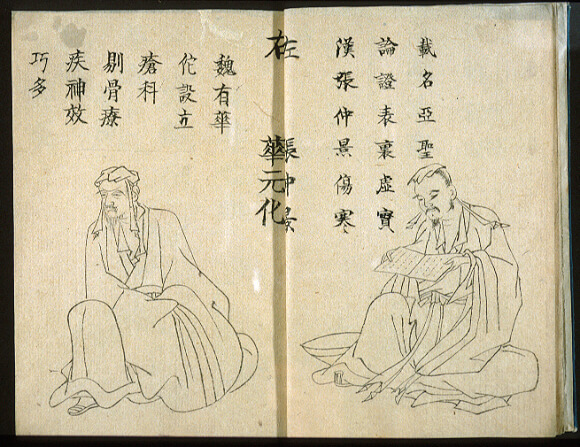 張仲景
漢張仲景傷寒
論證表裏虛實
載名亞聖
華元化
魏有華
佗設立
瘡科
剔骨療
疾神效
巧多